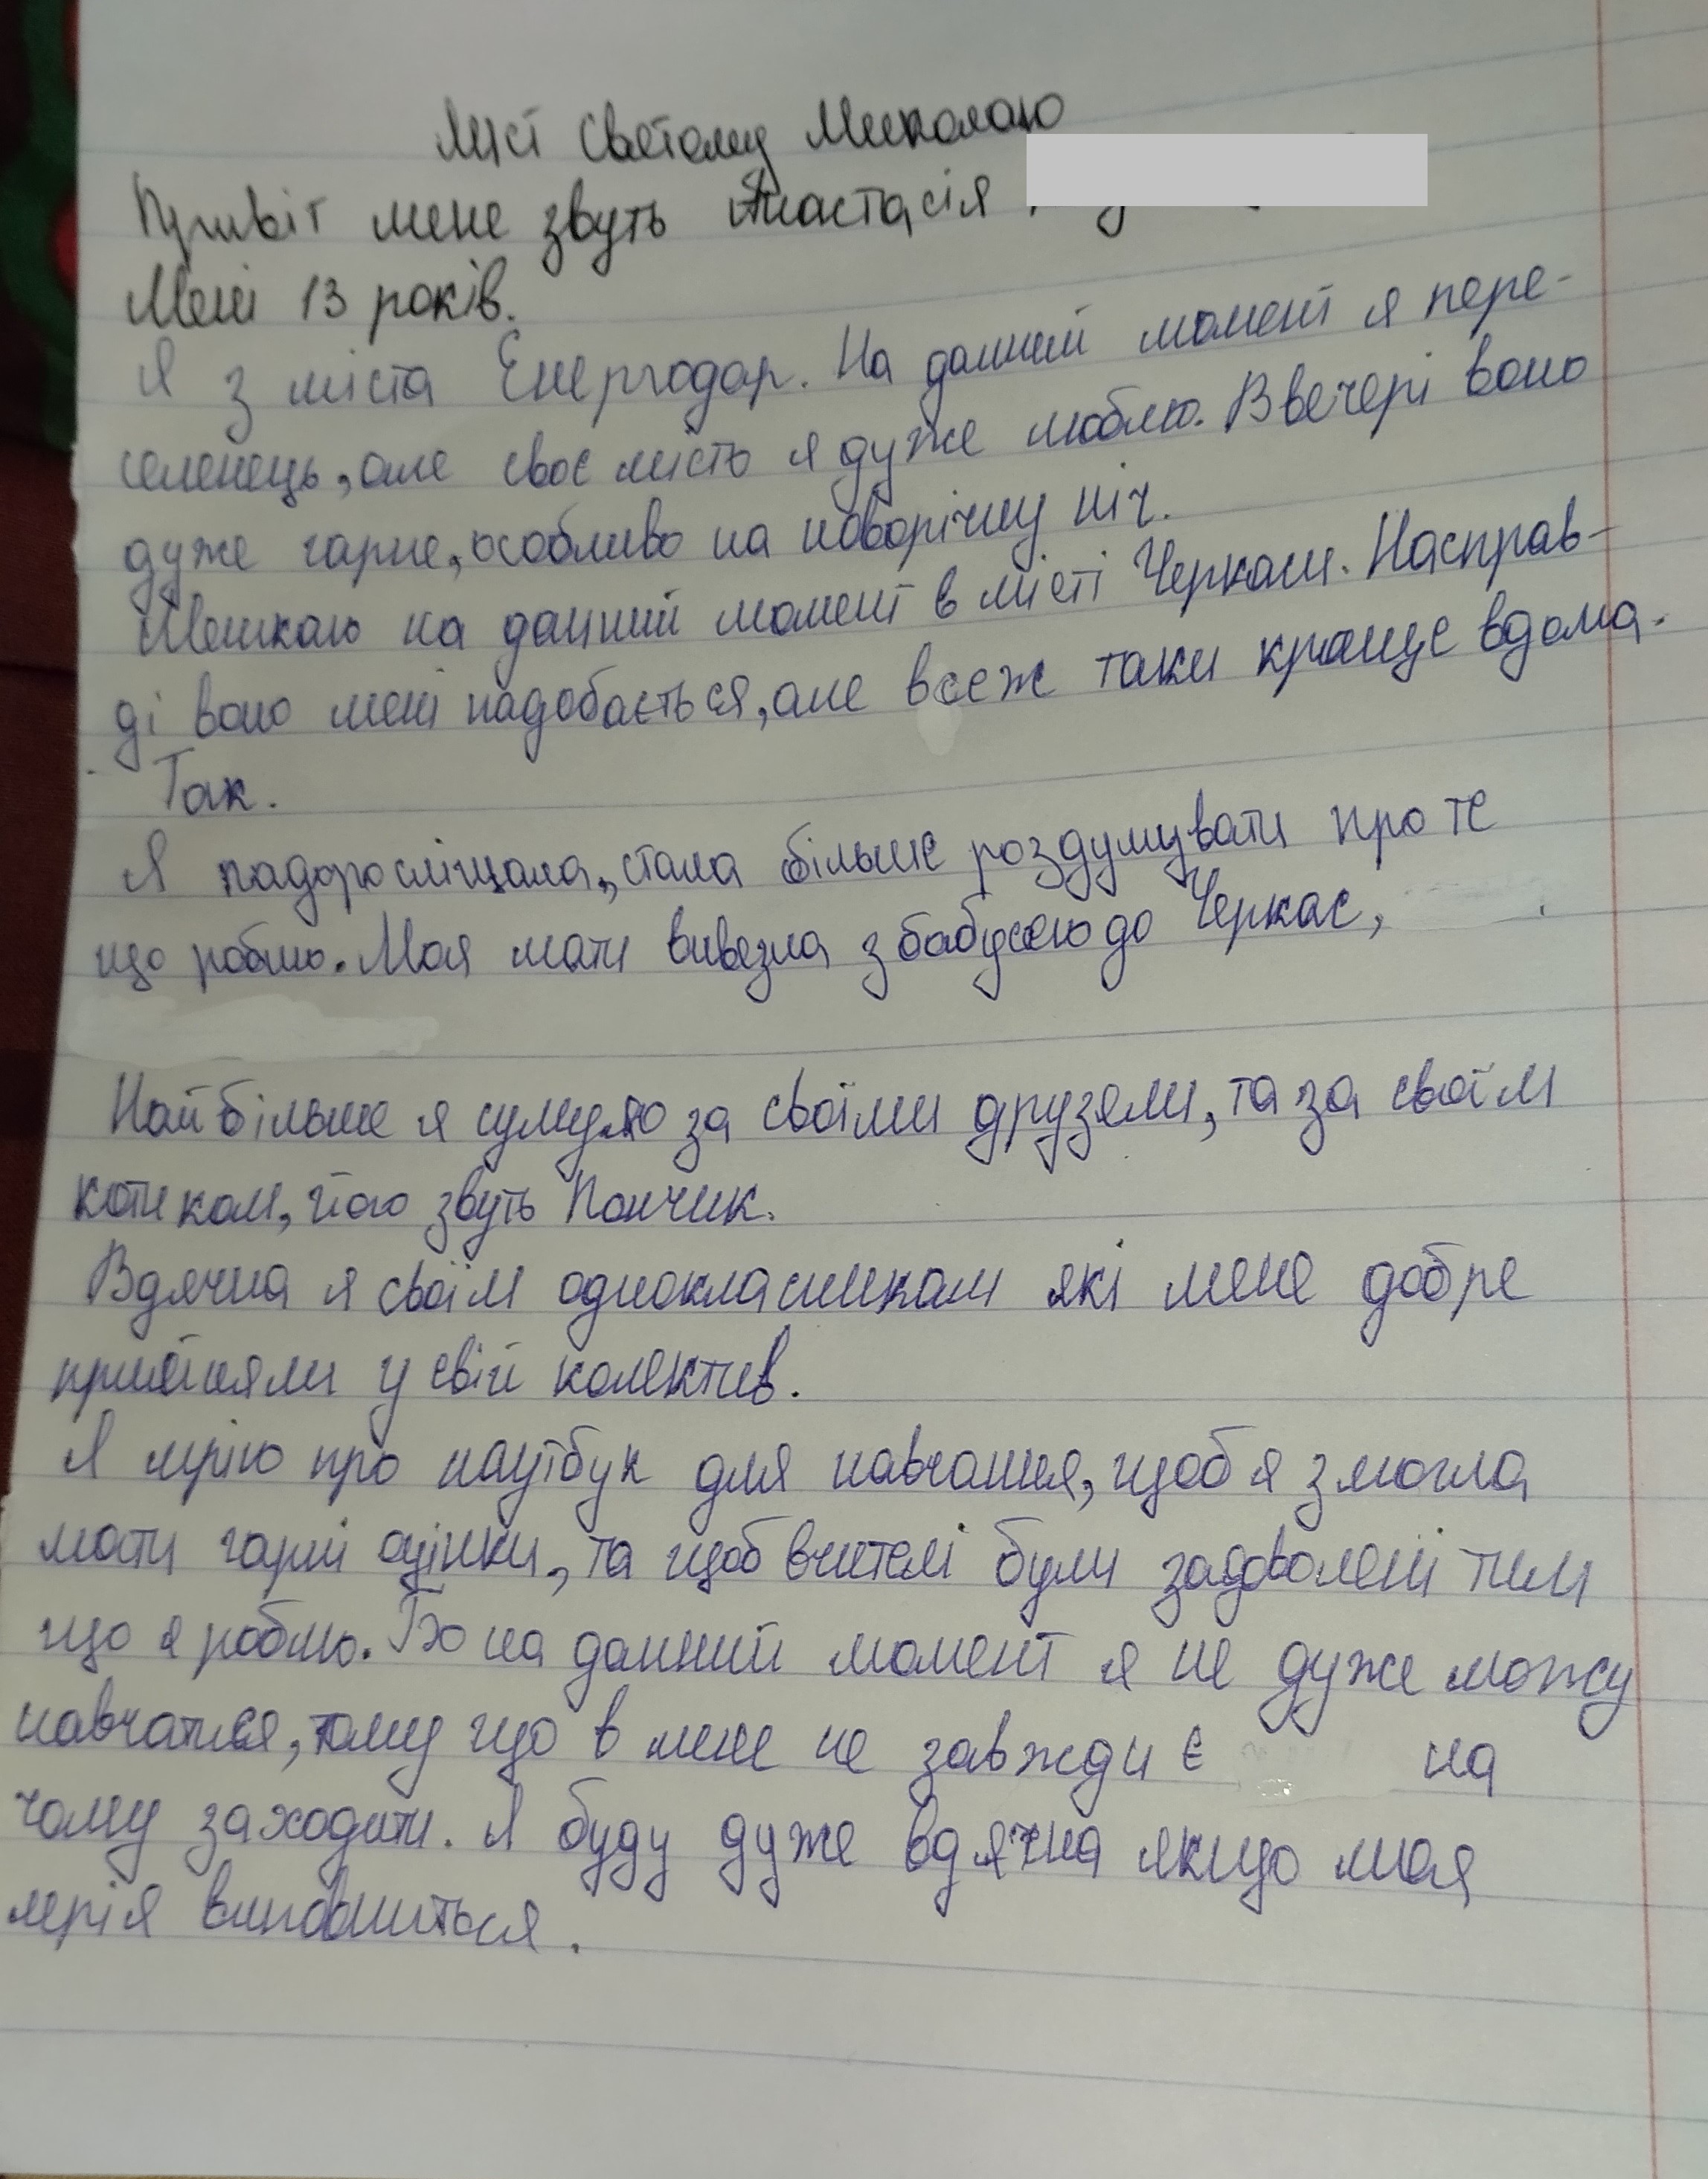 Лист Святому Миколаю
Привіт мене звуть Анастасія
Мені 13 років.
Я з міста Енергодар. На данний момент я пере-
селенець, але своє місто я дуже люблю. Ввечері воно
дуже гарне, особливо на новорічну ніч.
Мешкаю на данний момент в місті Черкаси. Насправ-
ді воно мені падобається, але всеж таки краще вдома.
Так.
Я падорослішала, стала більше роздумувати про те
що роблю. Моя мати вивезла з бабусею до Черкас,
Найбільше я сумую за своїми друзями, та за своїм
котиком, його звуть Пончик.
Вдячна я своїм однокласникам які мене добре
прийняли у свій колектив.
Я мрію про ноутбук для навчання, щоб я змогла
мати гарні оцінки, та щоб вчителі були задоволені тим
що я роблю. Бо на данний момент я не дуже можу
навчатися, тому що в мене не завжди є на
чому заходити. Я буду дуже вдячна якщо моя
мрія виповниться.